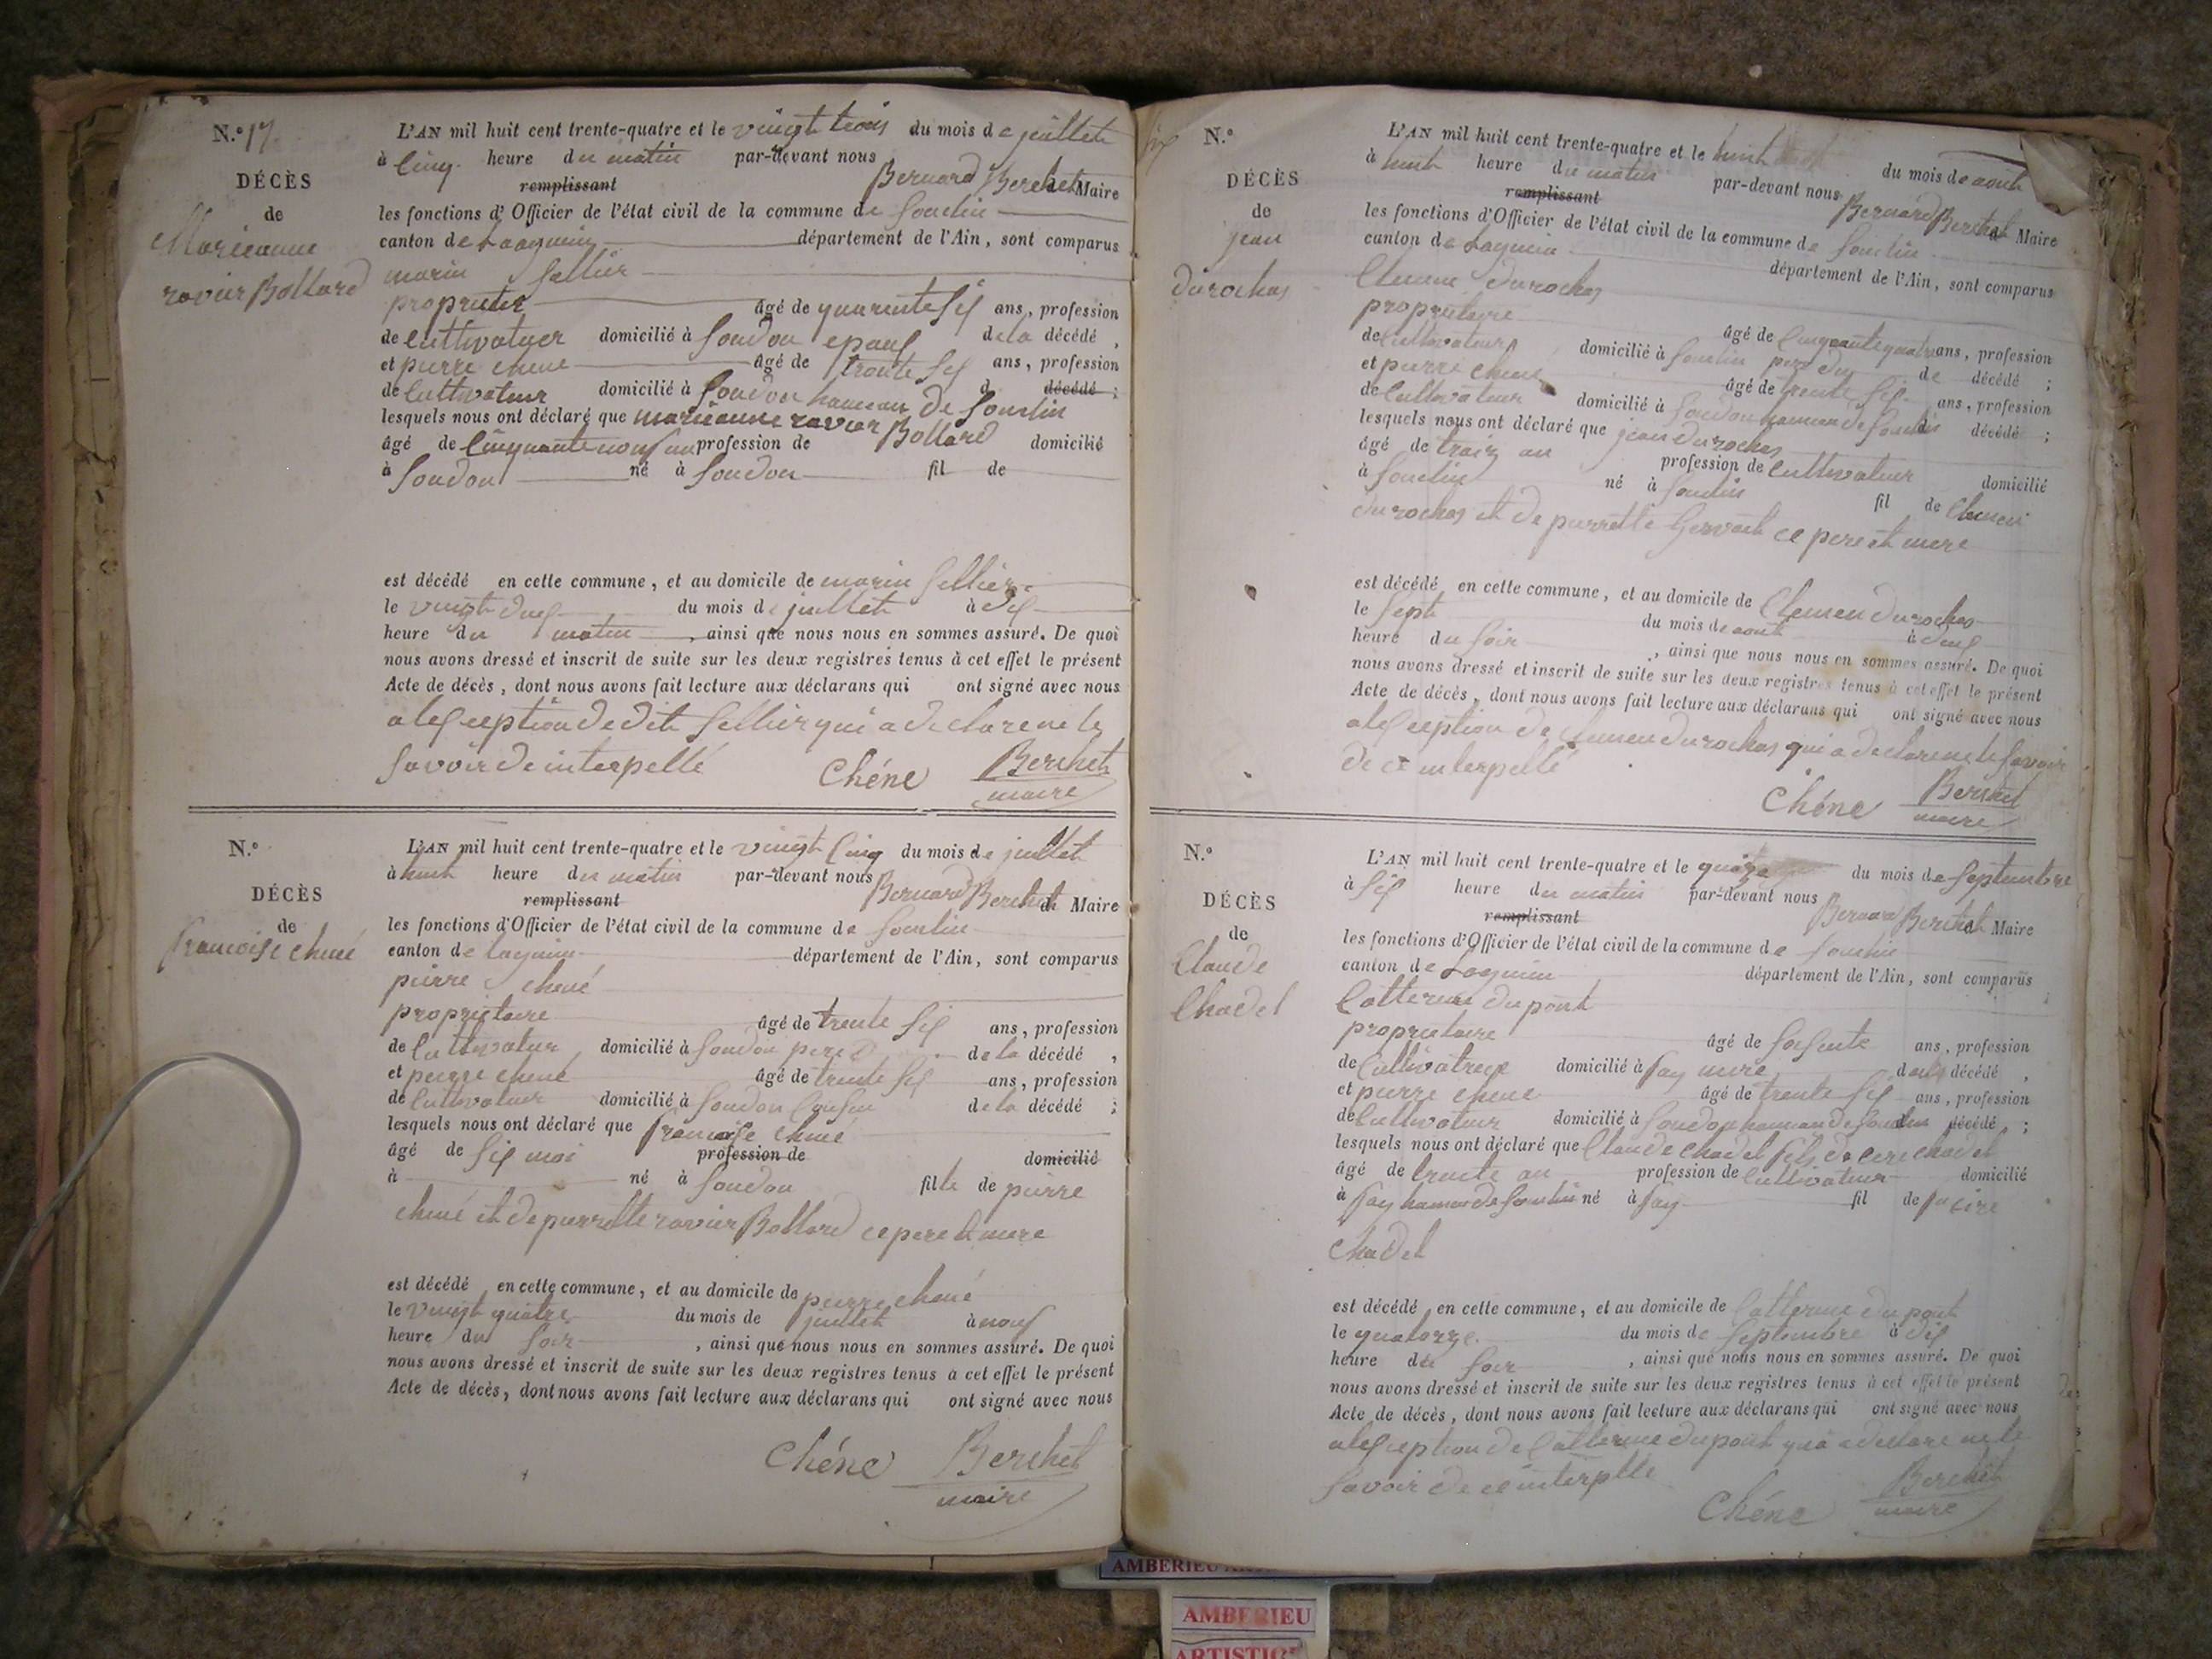 N.° 17
DÉCÈS
de
Marieanne
ravier Bollard
L'AN mil huit cent trente-quatre et le vingt trois du mois de juillet
à Cinq heure du matin par-devant nous Bernard Berchet Maire
remplissant
les fonctions d'Officier de l'état civil de la commune de Souclin
canton de Lagnieu département de l'Ain, sont comparus
marin Sellier
propriéter âgé de quarente Sis ans, profession
de Cultivatuer domicilié à Soudon epous de la décédé,
et pierre chene âgé de trente Sis ans, profession
de Cultivateur domicilié à Soudon hameau de Souclin d décédé;
lesquels nous ont déclaré que marieanne ravier Bollard
âgé de Cinquante nouf an profession de domicilié
à Soudon né à Soudon fil de
est décédé en cette commune, et au domicile de marin Sellier
le vingt dues du mois de juillet à dis
heure du matin, ainsi que nous nous en sommes assuré. De quoi
nous avons dressé et inscrit de suite sur les deux registres tenus à cet effet le présent
Acte de décès, dont nous avons fait lecture aux déclarans qui ont signé avec nous
a lesception de dit Sellier qui a declare ne le
Savoir de interpellé Chéne Berchet
maire
N.°
DÉCÈS
de
francoise chené
L'AN mil huit cent trente-quatre et le vingt Cinq du mois de juillet
à huit heure du matin par-devant nous Bernard Berchet Maire
remplissant
les fonctions d'Officier de l'état civil de la commune de Souclin
canton de lagnieu département de l'Ain, sont comparus
pierre chené
propriétaire âgé de trente Sis ans, profession
de Cultivatuer domicilié à Soudon pere de la décédé,
et pierre chené âgé de trente Sis ans, profession
de Cultivateur domicilié à Soudon Cousin de la décédé;
lesquels nous ont déclaré que francoise chené
âgé de Sis moi profession de domicilié
à né à Soudon fille de pierre
chené et de pierrette ravier Bollard ce pere et mere
est décédé en cette commune, et au domicile de pierre chené
le vingt quatre du mois de juillet à nouf
heure du Soir, ainsi que nous nous en sommes assuré. De quoi
nous avons dressé et inscrit de suite sur les deux registres tenus à cet effet le présent
Acte de décès, dont nous avons fait lecture aux déclarans qui ont signé avec nous
Chéne Berchet
maire
N.°
DÉCÈS
de
jean
durochas
L'AN mil huit cent trente-quatre et le huit du mois de aout
à huit heure du matin par-devant nous Bernard Berchet Maire
remplissant
les fonctions d'Officier de l'état civil de la commune de Souclin
canton de Lagnieu département de l'Ain, sont comparus
Clemen durochas
propriétaire âgé de Cinquante quatre ans, profession
de Cultivateur domicilié à Souclin pere du de décédé;
et pierre chene âgé de trente Sis ans, profession
de Cultivateur domicilié à Soudon hameau de Souclin décédé;
lesquels nous ont déclaré que jean durochas
âgé de traiz an profession de Cultivateur domicilié
à Souclin né à Souclin fil de Clemen
durochas et de pierrette Gervait ce pere et mere
est décédé en cette commune, et au domicile de Clemen durochas
le Sept du mois de aout à deus
heure du Soir, ainsi que nous nous en sommes assuré. De quoi
nous avons dressé et inscrit de suite sur les deux registres tenus à cet effet le présent
Acte de décès, dont nous avons fait lecture aux déclarans qui ont signé avec nous
a lesception de Clemen durochas qui a declare ne le Savoir
de ce interpellé
Chéne Berchet
maire
N.°
DÉCÈS
de
Claude
Chadel
L'AN mil huit cent trente-quatre et le quinze du mois de Septembre
à Sis heure du matin par-devant nous Bernard Berchet Maire
remplissant
les fonctions d'Officier de l'état civil de la commune de Souclin
canton de Lagnieu département de l'Ain, sont comparus
Catterine dupont
proprietaire âgé de Soisente ans, profession
de Cultivatrese domicilié à fay mere décédé,
et pierre chene âgé de trente Sis ans, profession
de Cultivateur domicilié à Soudon hameau de Souclin décédé;
lesquels nous ont déclaré que Claude chadel fils de chadel
âgé de trente an profession de Cultivateur domicilié
à fay hameau de Souclin né à fay fil de
Chadel
est décédé en cette commune, et au domicile de Catterine dupont
le quatorze du mois de Septembre à dis
heure du Soir, ainsi que nous nous en sommes assuré. De quoi
nous avons dressé et inscrit de suite sur les deux registres tenus à cet effet le présent
Acte de décès, dont nous avons fait lecture aux déclarans qui ont signé avec nous
a lesception de Catterine dupont qui a declare ne le
Savoir de ce interpelle
Chéne Berchet
maire
AMBERIEU
AMBERIEU
ARTISTIQ